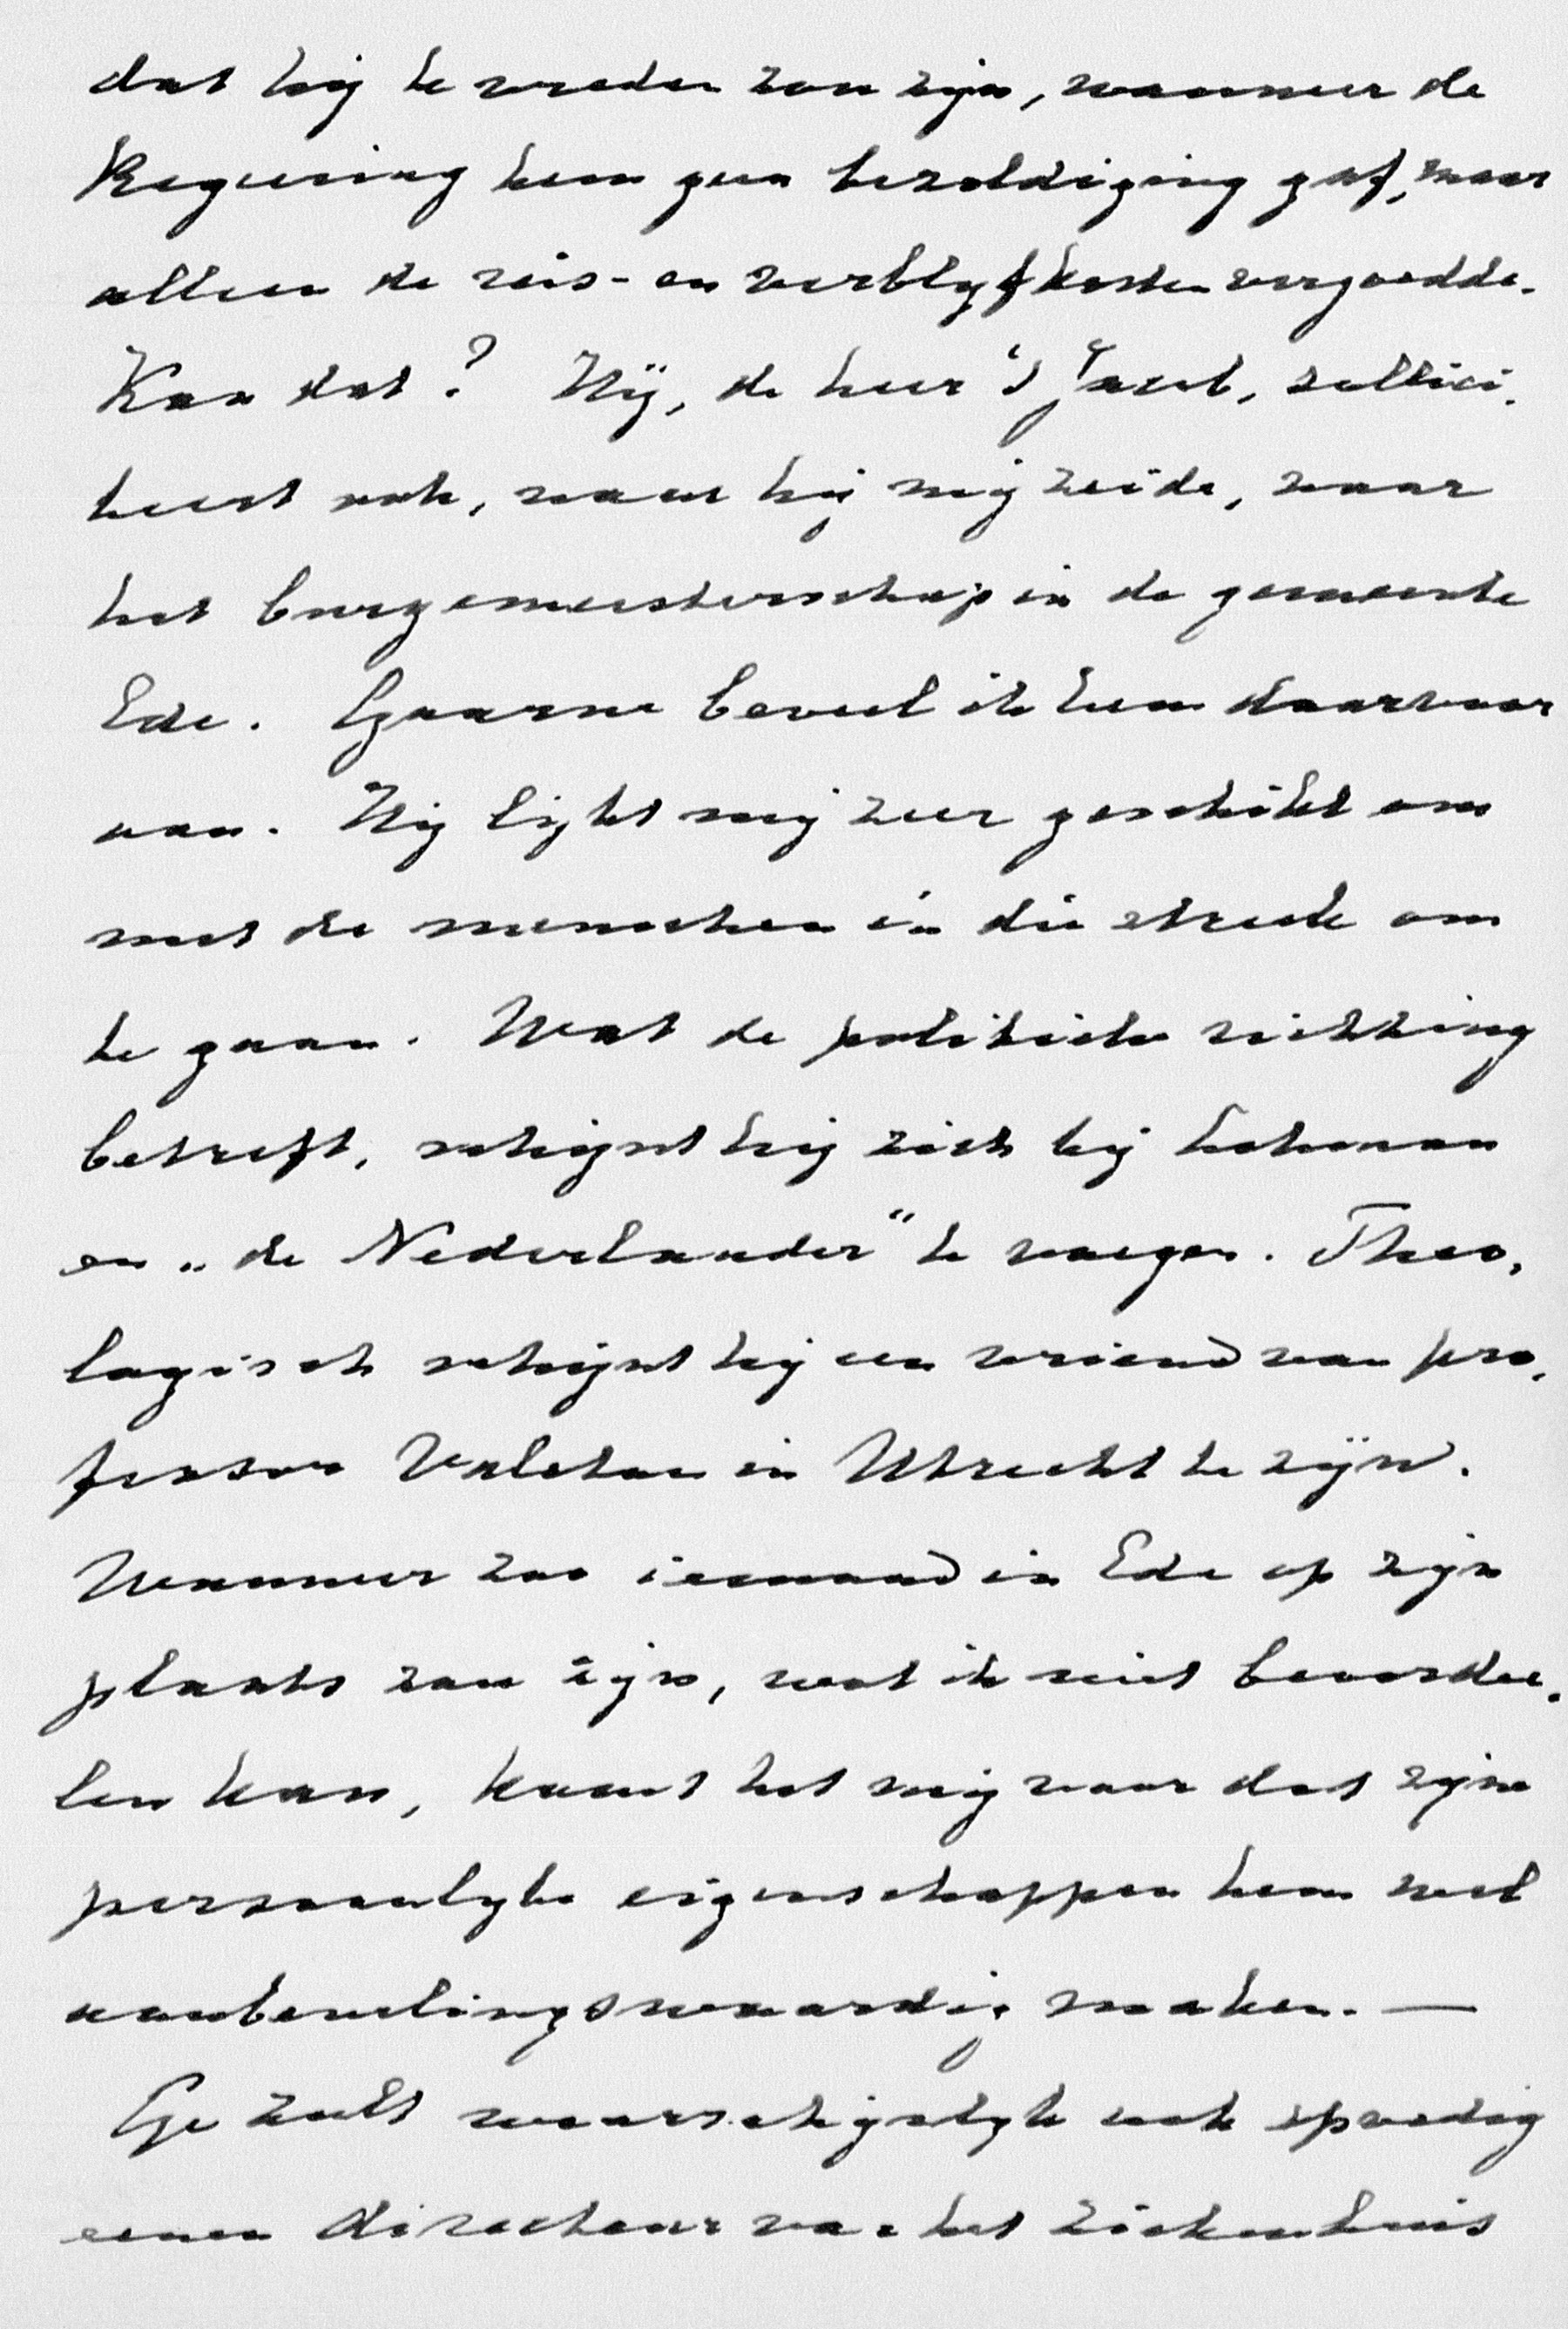 dat hij te vreden zou zijn, wanneer de
Regeering hem geen bezoldiging gaf, maar
alleen de reis- en verblyfkosten vergoedde.
Kan dat? Hij, de heer 's Jacob, sollici,
teert ook, naar hij mij zeide, naar
het burgemeesterschap in de gemeente
Ede. Gaarne beveel ik hem daarvoor
aan. Hij lijkt mij zeer geschikt om
met de menschen in die streek om
te gaan. Wat de politieke richting
betreft, schijnt hij zich bij Lohman
en „de Nederlander" te voegen. Theo,
logisch schijnt hij een vriend van pro,
fessor Valeton in Utrecht te zijn.
Wanneer zoo iemand in Ede op zijn
plaats zou zijn, wat ik niet beoordee,
len kan, komt het mij voor dat zijne
persoonlyke eigenschappen hem wel
aanbevelingswaardig maken. —
Ge zult waarschijnlyk ook spoedig
eenen directeur van het ziekenhuis